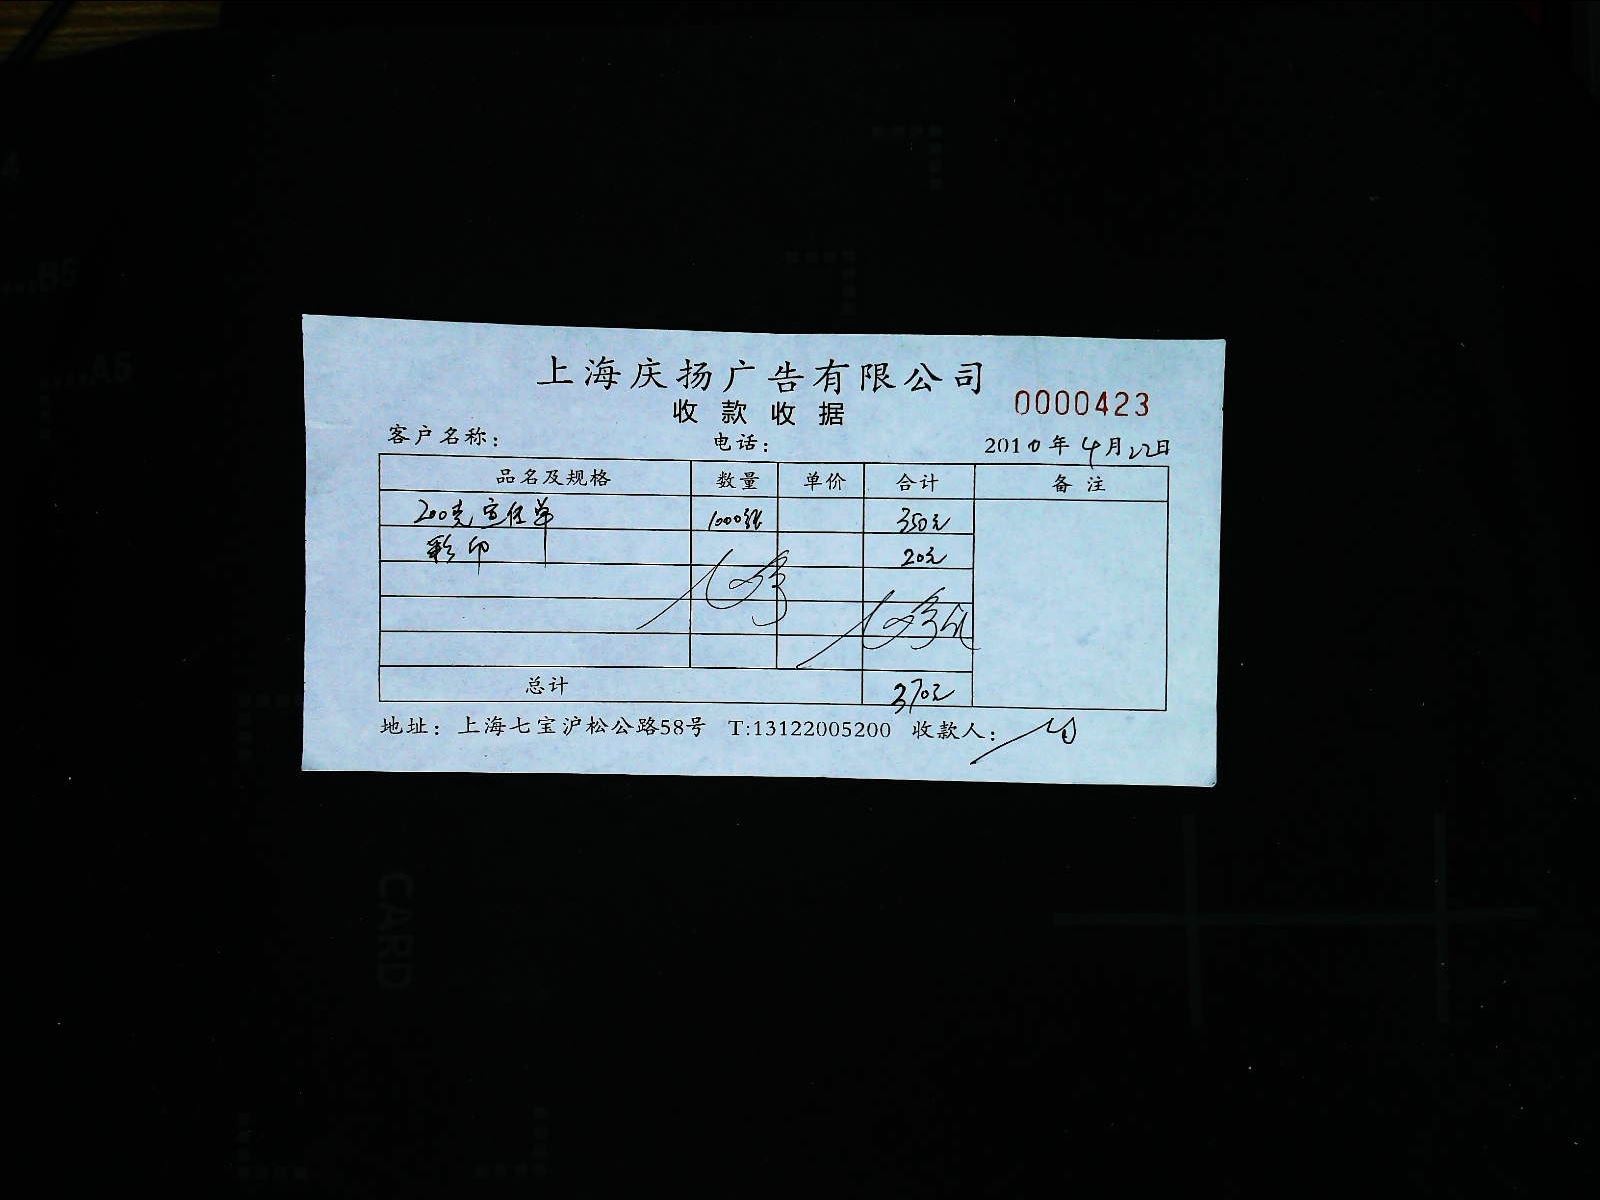 上海庆扬广告有限公司
收款收据
0000423
客户名称： 电话： 2010年4月22日
品名及规格 数量 单价 合计 备注
200克宣传单 1000张 350元
彩印 20元
总计 370元
地址：上海七宝沪松公路58号 T:13122005200 收款人：
B5
A5
CARD